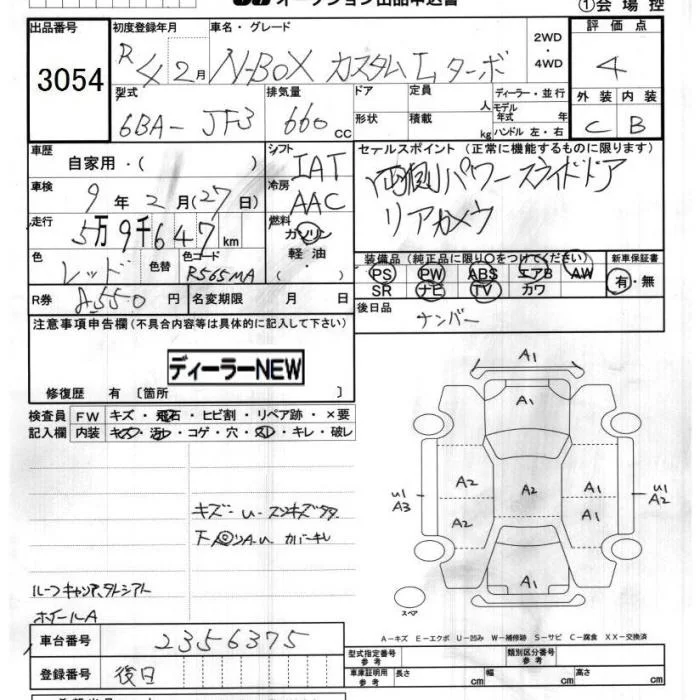 オークション出品申込書
①会場控
出品番号
3054
初度登録年月
R 4 2月
車名・グレード
N-BOX カスタム L ターボ
2WD
・
4WD
評価点
4
外装 内装
C B
型式
6BA-JF3
排気量
660 cc
ドア
形状
定員
人
積載
kg
ディーラー・並行
モデル
年式 年
ハンドル 左・右
車歴
自家用・( )
シフト
IAT
セールスポイント (正常に機能するものに限ります)
両側パワースライドドア
リアカメラ
車検
9年2月(27日)
冷房
AAC
走行
5万9千647km
燃料
ガソリン
軽油
( )
色
レッド
色替
色コード
R565MA
装備品(純正品に限り○をつけてください)
PS PW ABS エアB AW
SR ナビ TV カワ
新車保証書
有・無
R券
円
名変期限 月 日
後日品
ナンバー
注意事項申告欄(不具合内容等は具体的に記入して下さい)
ディーラーNEW
修復歴 有〔箇所 〕
検査員
記入欄
FW キズ・飛石・ヒビ割・リペア跡・×要
内装 キズ・汚れ・コゲ・穴・スレ・キレ・破レ
A1
A1
A2
A2
A2
A1
A1
U1
A3
U1
A2
A1
A1
スペア
ホイールA
A-キズ E-エクボ U-凹み W-補修跡 S-サビ C-腐食 XX-交換済
車台番号
2356375
登録番号
後日
型式指定番号
参考
類別区分番号
参考
車庫証明用
参考
長さ cm 幅 cm 高さ cm